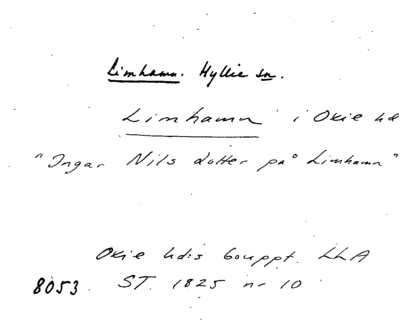 Limhamn. Hyllie sn.
Limhamn i Oxie hd
"Ingar Nils dotter på Limhamn"
Oxie hds bouppt. LLA
8053. ST. 1825 nr 10